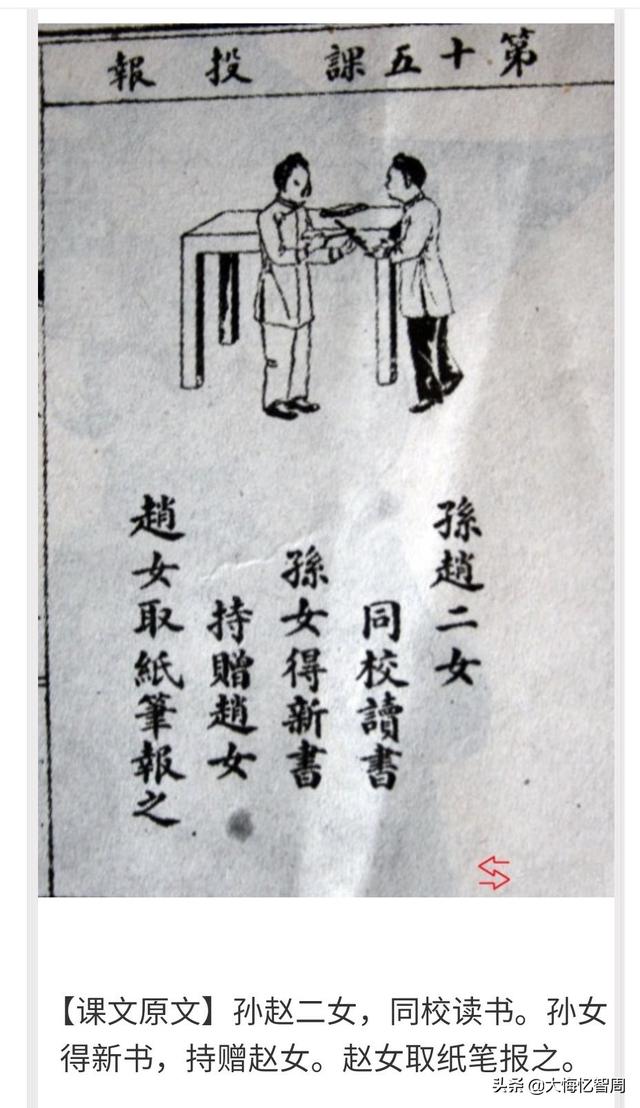 第十五課 投報
孫趙二女
同校讀書
孫女得新書
持贈趙女
趙女取紙筆報之
【课文原文】孙赵二女，同校读书。孙女
得新书，持赠赵女。赵女取纸笔报之。
头条 @大悔忆智周